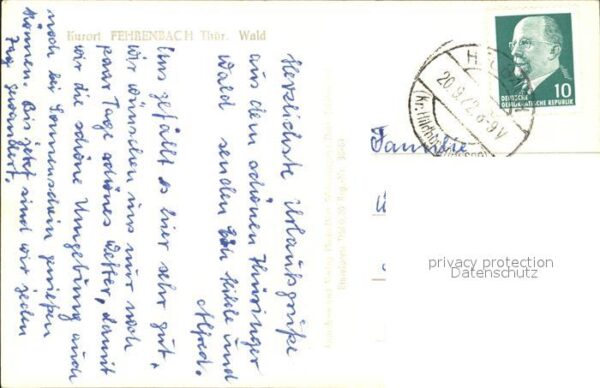 Kurort FEHRENBACH Thür. Wald
Herzlichste Urlaubsgrüße
aus dem schönen Thüringer
Wald senden Euch Hilde und
Alfred.
Uns gefällt es hier sehr gut,
wir wünschen uns nur noch
paar Tage schönes Wetter, damit
wir die schöne Umgebung auch
noch bei Sonnenschein genießen
können. Bis jetzt sind wir jeden
Tag gewandert.
20.9.62
10
DEUTSCHE
DEMOKRATISCHE REPUBLIK
Familie
privacy protection
Datenschutz